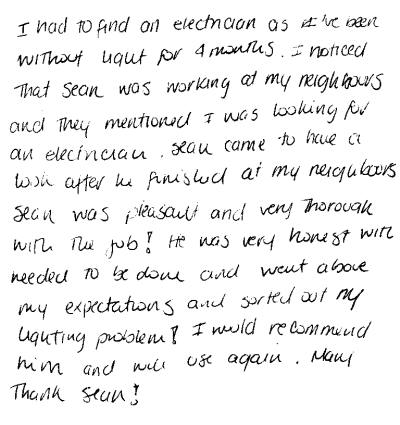 I had to find an electrician as I've been
without light for 4 months. I noticed
that Sean was working at my neighbours
and they mentioned I was looking for
an electrician. Sean came to have a
look after he finished at my neighbours
Sean was pleasant and very thorough
with the job! He was very honest with
needed to be done and went above
my expectations and sorted out my
lighting problem! I would recommend
him and will use again. Many
Thank Sean!